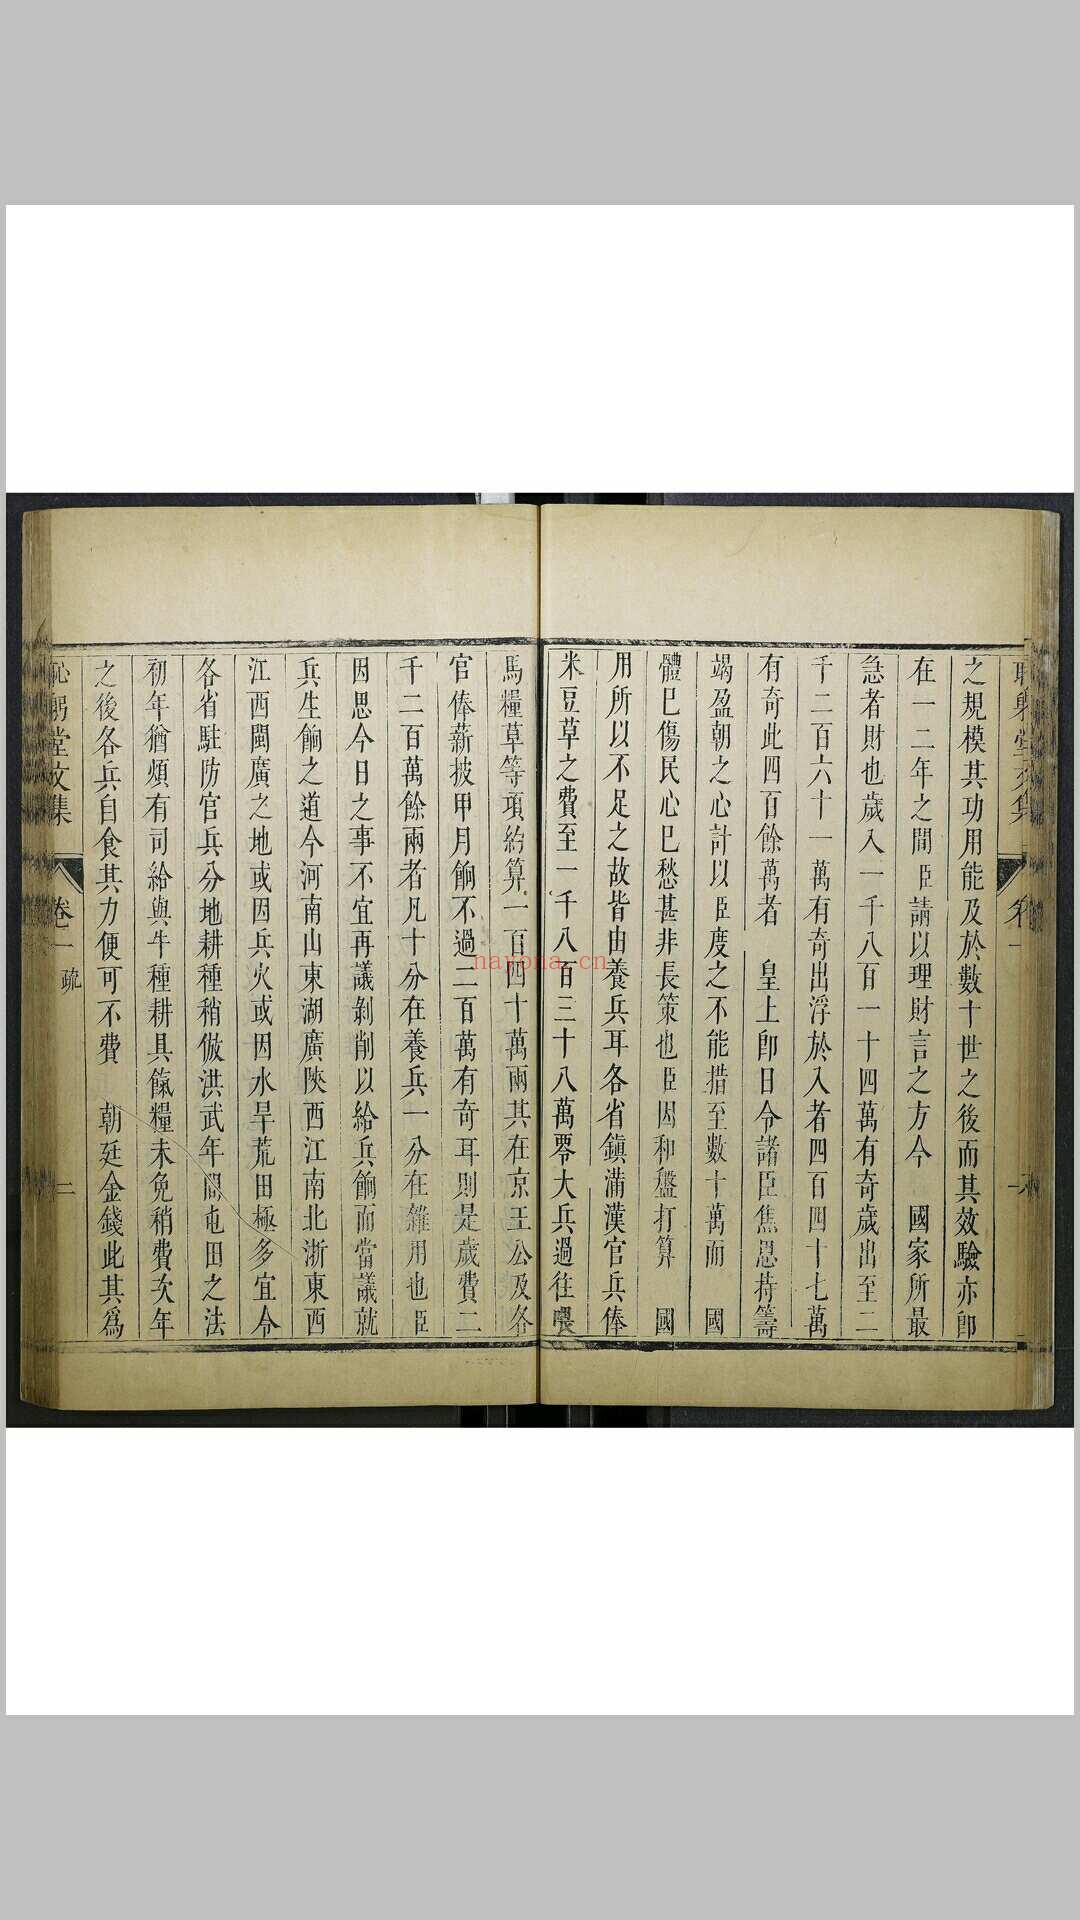 之規模其功用能及於數十世之後而其效驗亦卽
在一二年之間臣請以理財言之方今　國家所最
急者財也歲入一千八百一十四萬有奇歲出至二
千二百六十一萬有奇出浮於入者四百四十七萬
有奇此四百餘萬者　皇上卽日令諸臣焦思持籌
竭盈朝之心計以臣度之不能措至數十萬而　國
體已傷民心已愁甚非長策也臣因和盤打算　國
用所以不足之故皆由養兵耳各省鎮滿漢官兵俸
米豆草之費至一千八百三十八萬零大兵過往喂
馬糧草等項約算一百四十萬兩其在京王公及各
官俸薪披甲月餉不過二百萬有奇耳則是歲費二
千二百萬餘兩者凡十分在養兵一分在雜用也臣
因思今日之事不宜再議剝削以給兵餉而當議就
兵生餉之道今河南山東湖廣陝西江南北浙東西
江西閩廣之地或因兵火或因水旱荒田極多宜令
各省駐防官兵分地耕種稍倣洪武年間屯田之法
初年猶煩有司給與牛種耕具餼糧未免稍費次年
之後各兵自食其力便可不費　朝廷金錢此其爲
恥躬堂文集　卷一　疏　二
nayona.cn